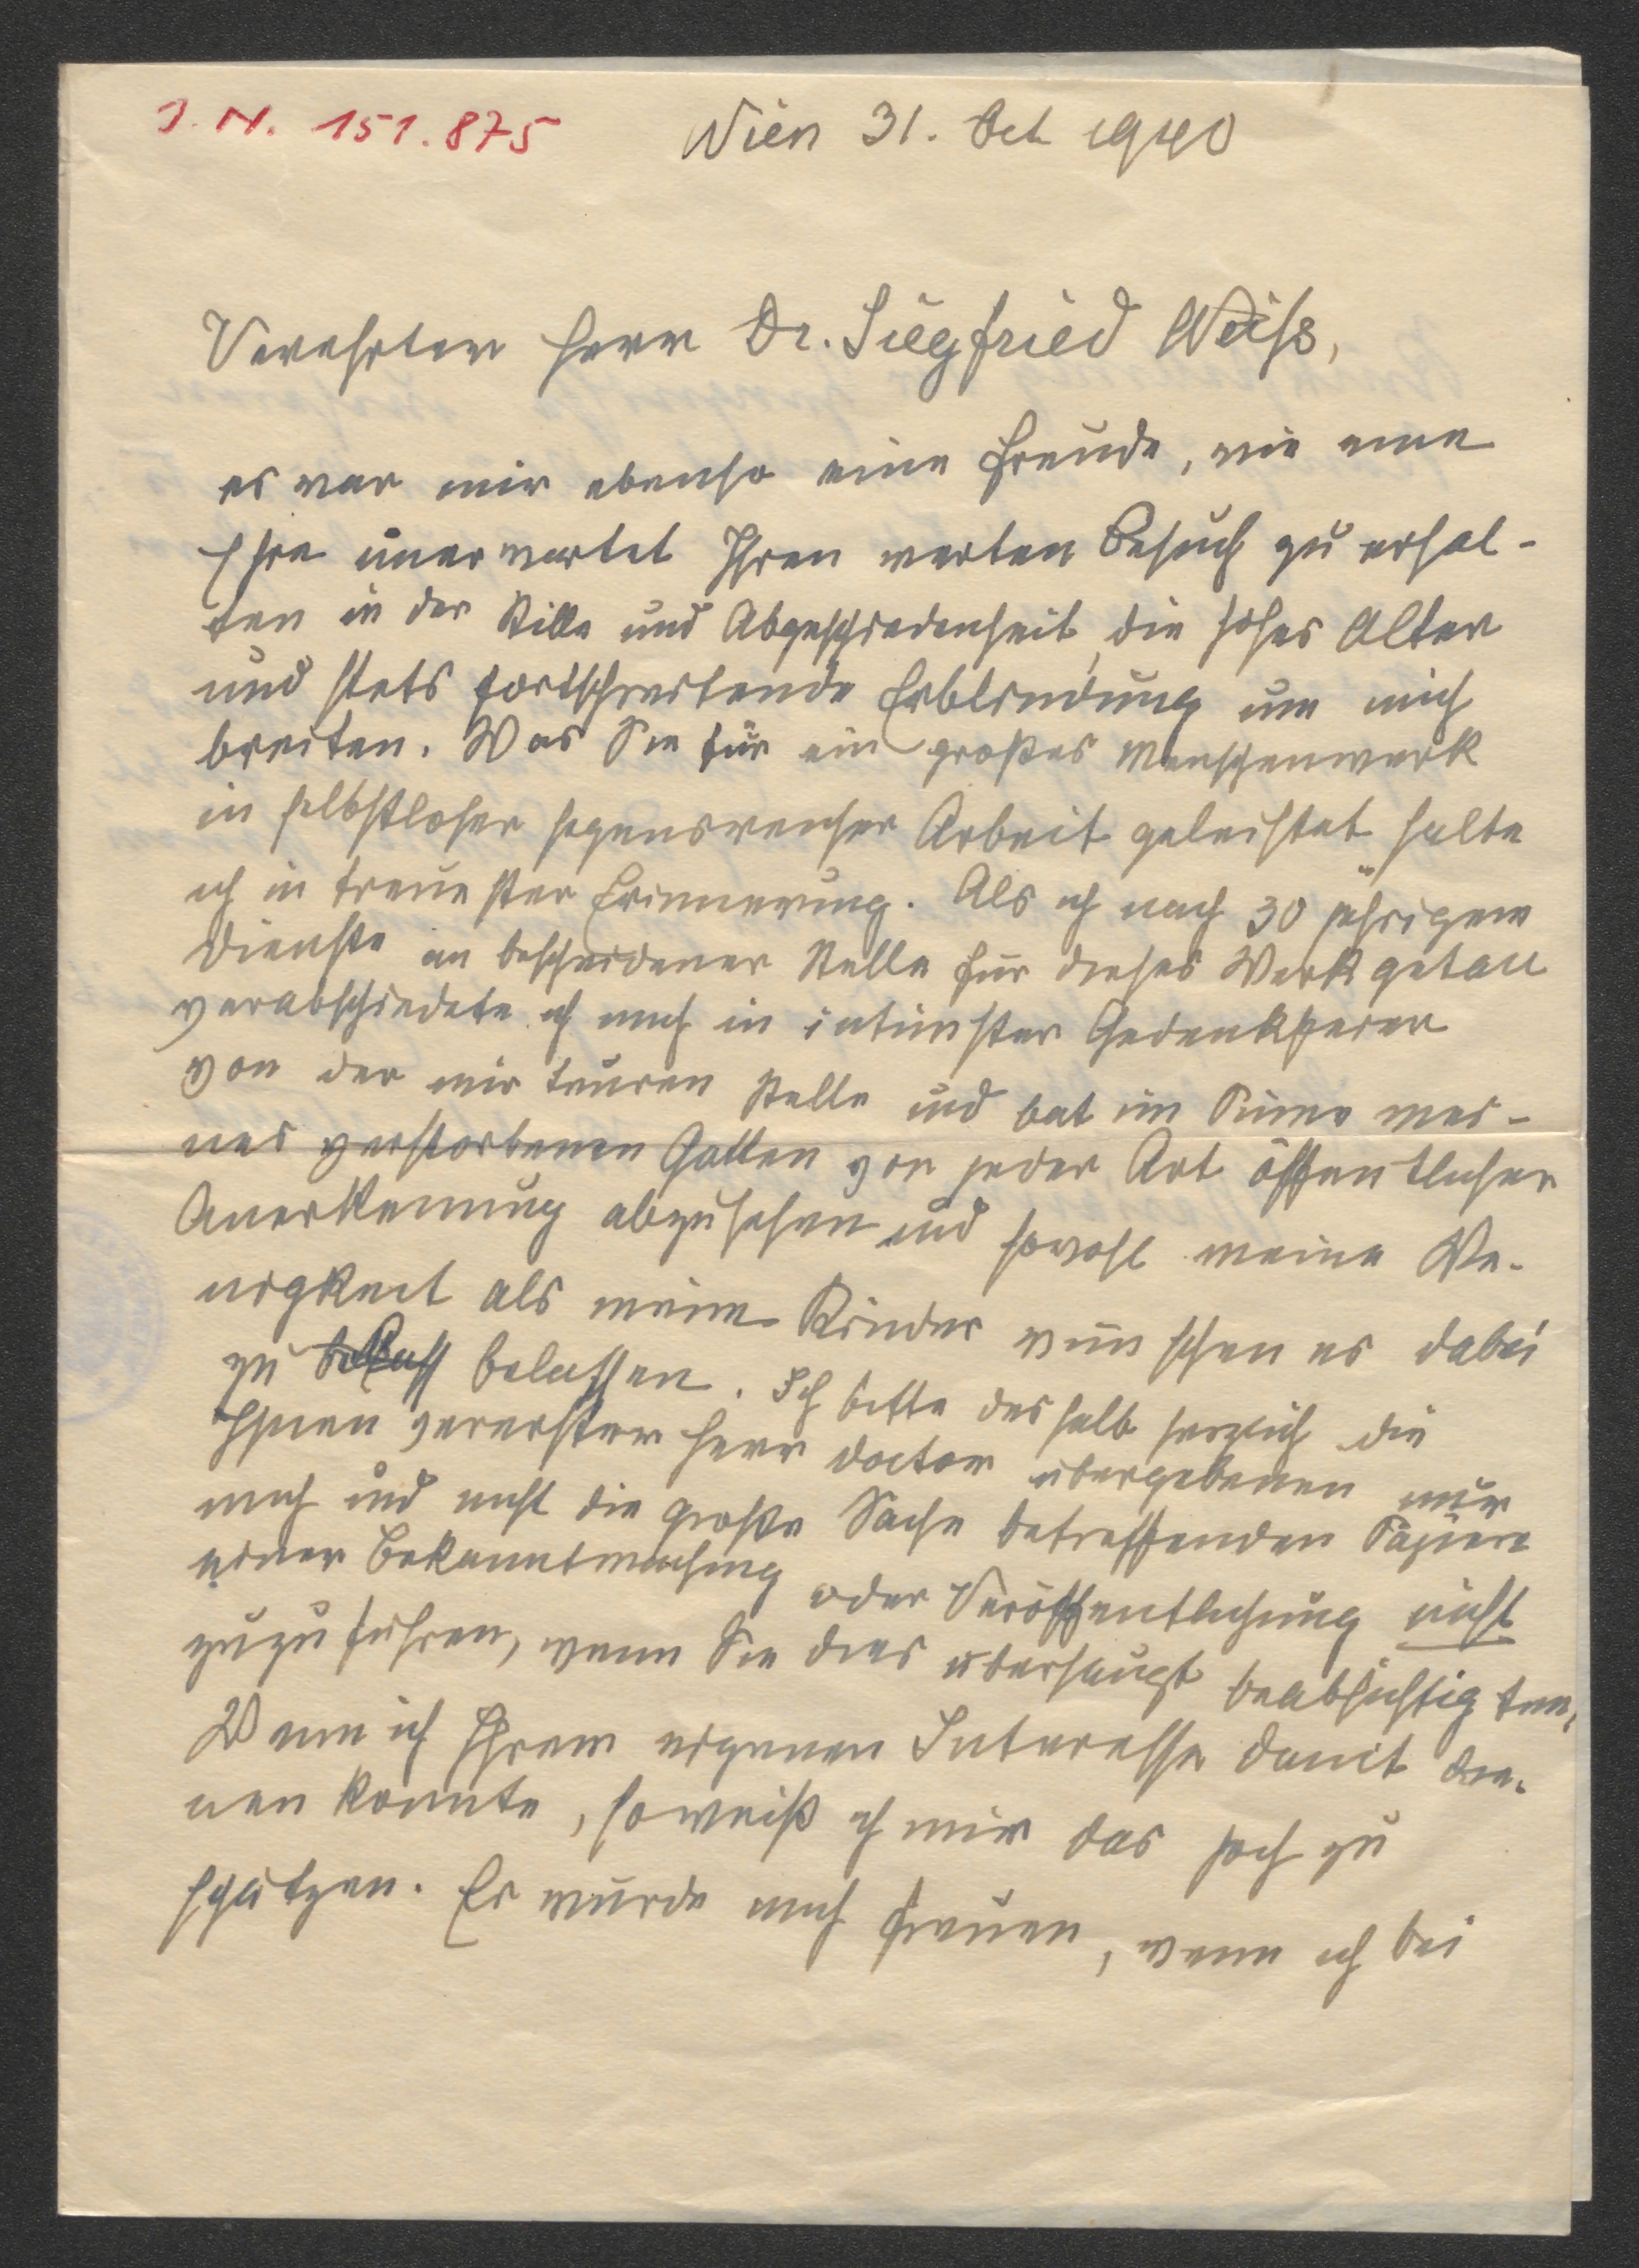 I. N. 151.875
Wien 31. Oct 1940
Verehrter Herr Dr. Siegfried Weiss,
es war mir ebenso eine Freude, wie eine
Ehre unerwartet Ihren werten Besuch zu erhal-
ten in der Stille und Abgeschiedenheit, die hohes Alter
und stets fortschreitende Erblindung um mich
breiten. Was Sie für ein großes Menschenwerk
in selbstloser segensreicher Arbeit geleistet halte
ich in treuester Erinnerung. Als ich nach 30 jährigem
Dienste an bescheidener Stelle für dieses Werk getan
verabschiedete ich mich in intimster Gedenkfeier
von der mir teuren Stelle und bat im Sinne mei-
nes verstorbenen Gatten von jeder Art öffentlicher
Anerkennung abzusehen und sowohl meine We-
nigkeit als meine Kinder wünschen es dabei
zu belassen. Ich bitte deshalb herzlich die
Ihnen verehrter Herr Doctor übergebenen nur
mich und nicht die große Sache betreffenden Papiere
einer Bekanntmachung oder Veröffentlichung nicht
zuzuführen, wenn Sie dies überhaupt beabsichtigten.
Wenn ich Ihrem eigenen Interesse damit die-
nen konnte, so weiß ich mir das hoch zu
schätzen. Es würde mich freuen, wenn ich bei